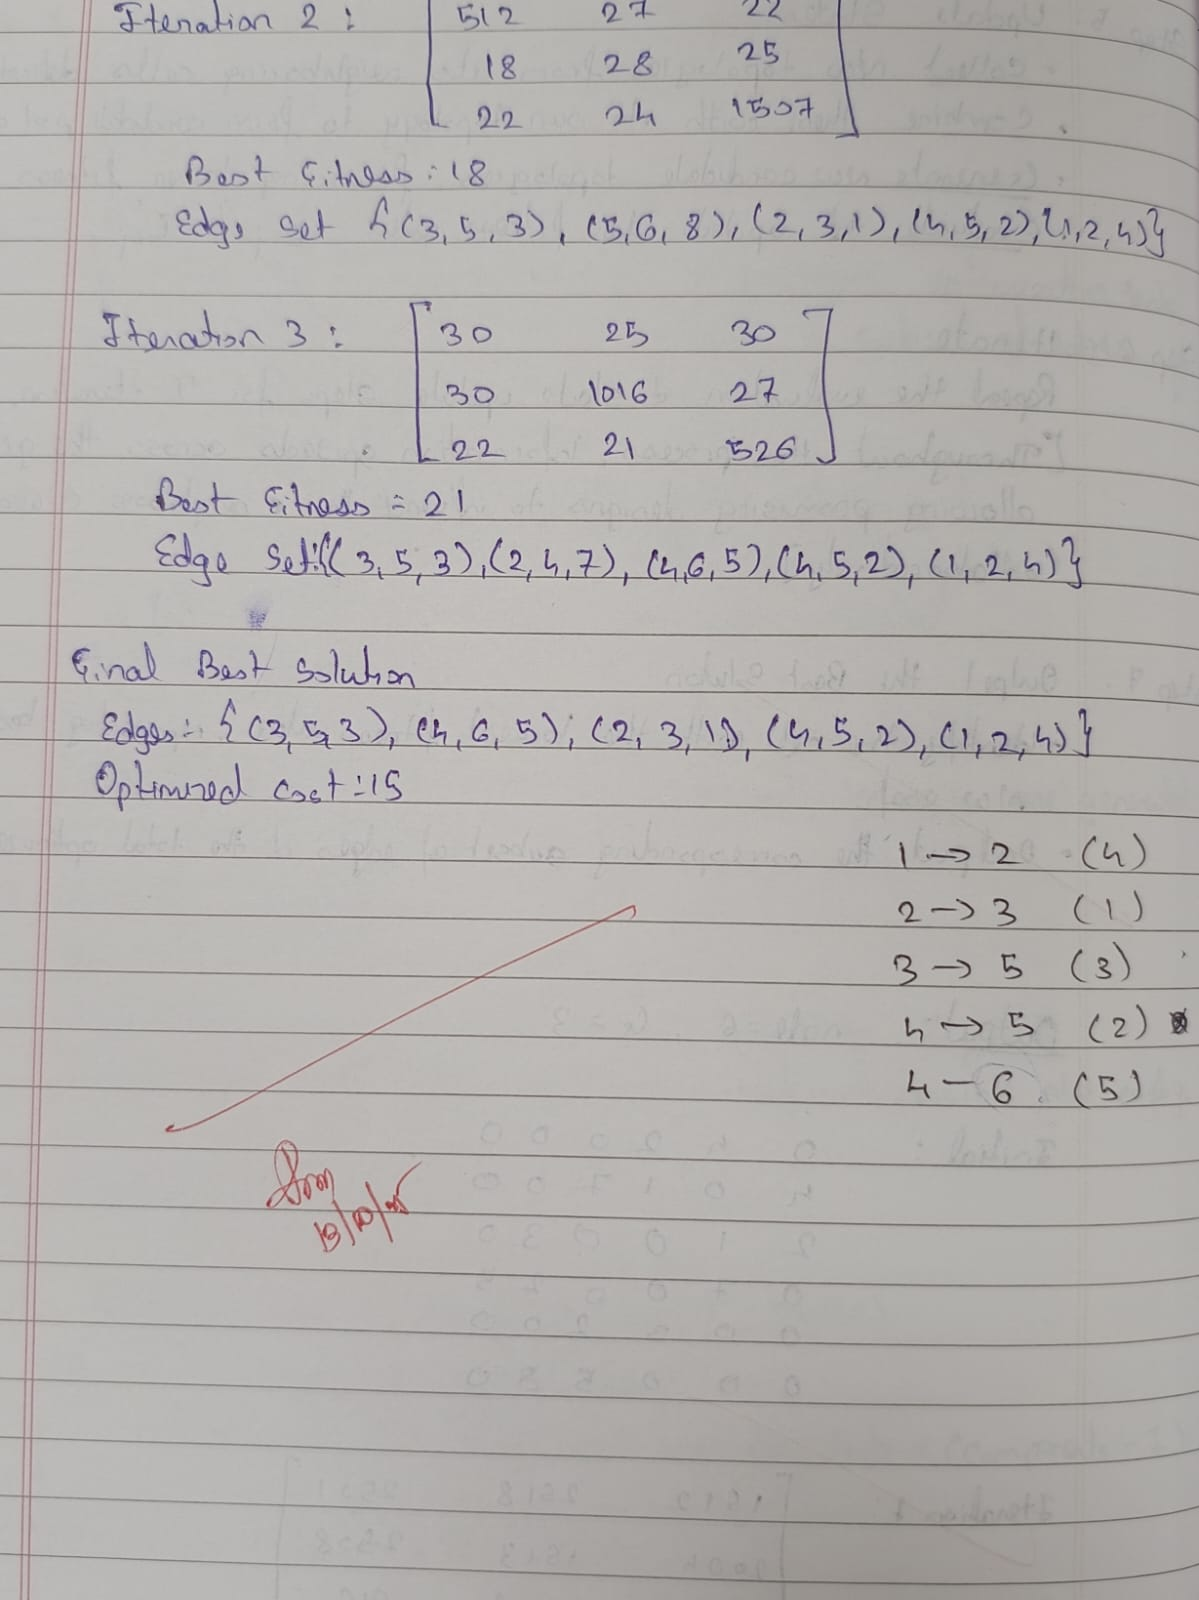 Iteration 2 :
512 27 22
18 28 25
22 24 1507
Best Fitness : 18
Edge set {(3,5,3), (5,6,8), (2,3,1), (4,5,2), (1,2,4)}
Iteration 3 :
30 25 30
30 1016 27
22 21 526
Best Fitness = 21
Edge Set:{(3,5,3), (2,4,7), (4,6,5), (4,5,2), (1,2,4)}
Final Best Solution
Edges = {(3,5,3), (4,6,5), (2,3,1), (4,5,2), (1,2,4)}
Optimized cost = 15
1 → 2 (4)
2 → 3 (1)
3 → 5 (3)
4 → 5 (2)
4 – 6 (5)